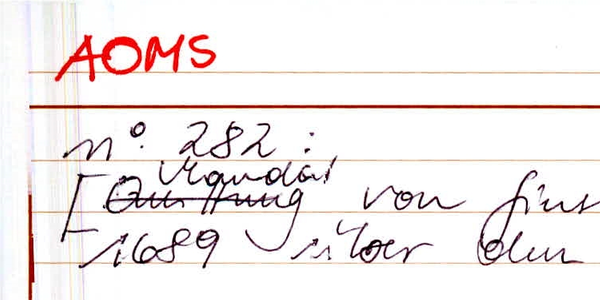 AOMS
n° 282:
Mandat
[Quittung von
1689 über den